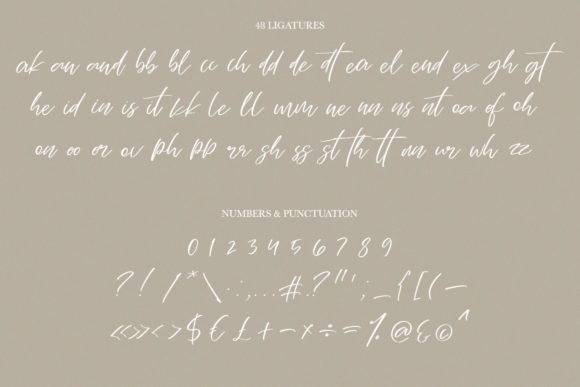 48 LIGATURES
ak an and bb bl cc ch dd de dt ea el end ex gh gt
he id in is it kk le ll mm ne nn ns nt oa of oh
on oo or ov ph pp rr sh ss st th tt un ur wh zz
NUMBERS & PUNCTUATION
0 1 2 3 4 5 6 7 8 9
? ! / * \ · : , … # . ? " ' ; _ { [ ( –
« » < > $ € £ + − × ÷ = % @ & © ^